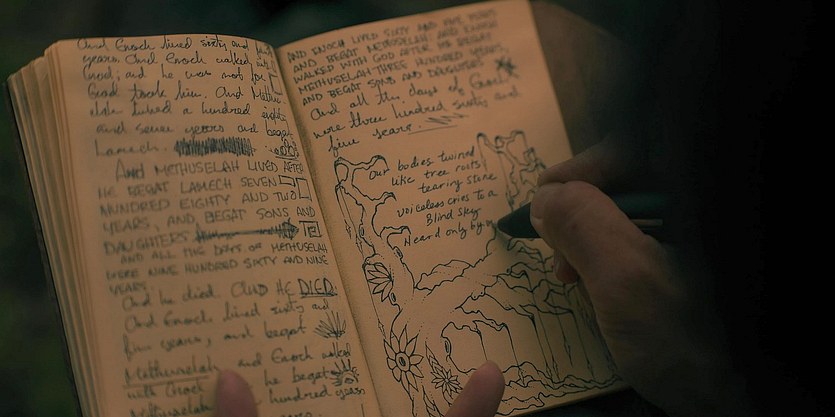 And Enoch lived sixty and five
years. And Enoch walked with
God; and he was not for
God took him. And Methu
selah lived a hundred eighty
and seven years and begat
Lamech.
AND METHUSELAH LIVED AFTER
HE BEGAT LAMECH SEVEN
HUNDRED EIGHTY AND TWO
YEARS, AND BEGAT SONS AND
DAUGHTERS
AND ALL THE DAYS OF METHUSELAH
WERE NINE HUNDRED SIXTY AND NINE
YEARS.
And he died. AND HE DIED
And Enoch lived sixty and
five years, and begat
Methuselah and Enoch walked
with God he begat
Methuselah hundred years
AND ENOCH LIVED SIXTY AND FIVE YEARS
AND BEGAT METHUSELAH. AND ENOCH
WALKED WITH GOD AFTER HE BEGAT
METHUSELAH THREE HUNDRED YEARS,
AND BEGAT SONS AND DAUGHTERS
And all the days of Enoch
were three hundred sixty and
five years.
Our bodies twined
like tree roots
tearing stone
voiceless cries to a
Blind Sky
Heard only by